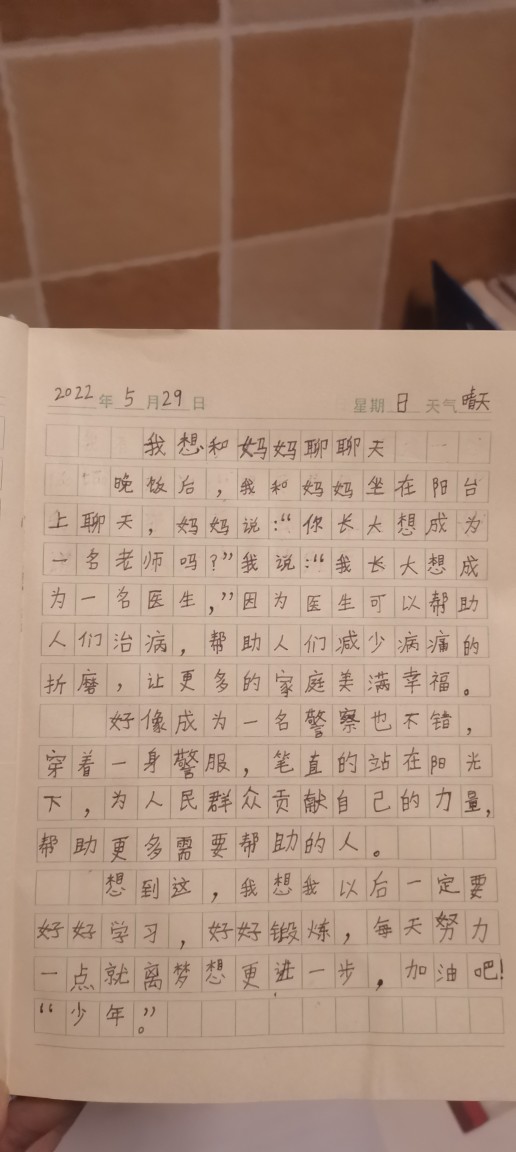 2022年5月29日 星期日 天气晴天
我想和妈妈聊聊天
晚饭后，我和妈妈坐在阳台
上聊天，妈妈说:“你长大想成为
一名老师吗?”我说:“我长大想成
为一名医生,”因为医生可以帮助
人们治病，帮助人们减少病痛的
折磨，让更多的家庭美满幸福。
好像成为一名警察也不错，
穿着一身警服，笔直的站在阳光
下，为人民群众贡献自己的力量，
帮助更多需要帮助的人。
想到这，我想我以后一定要
好好学习，好好锻炼，每天努力
一点就离梦想更进一步，加油吧!
“少年”。